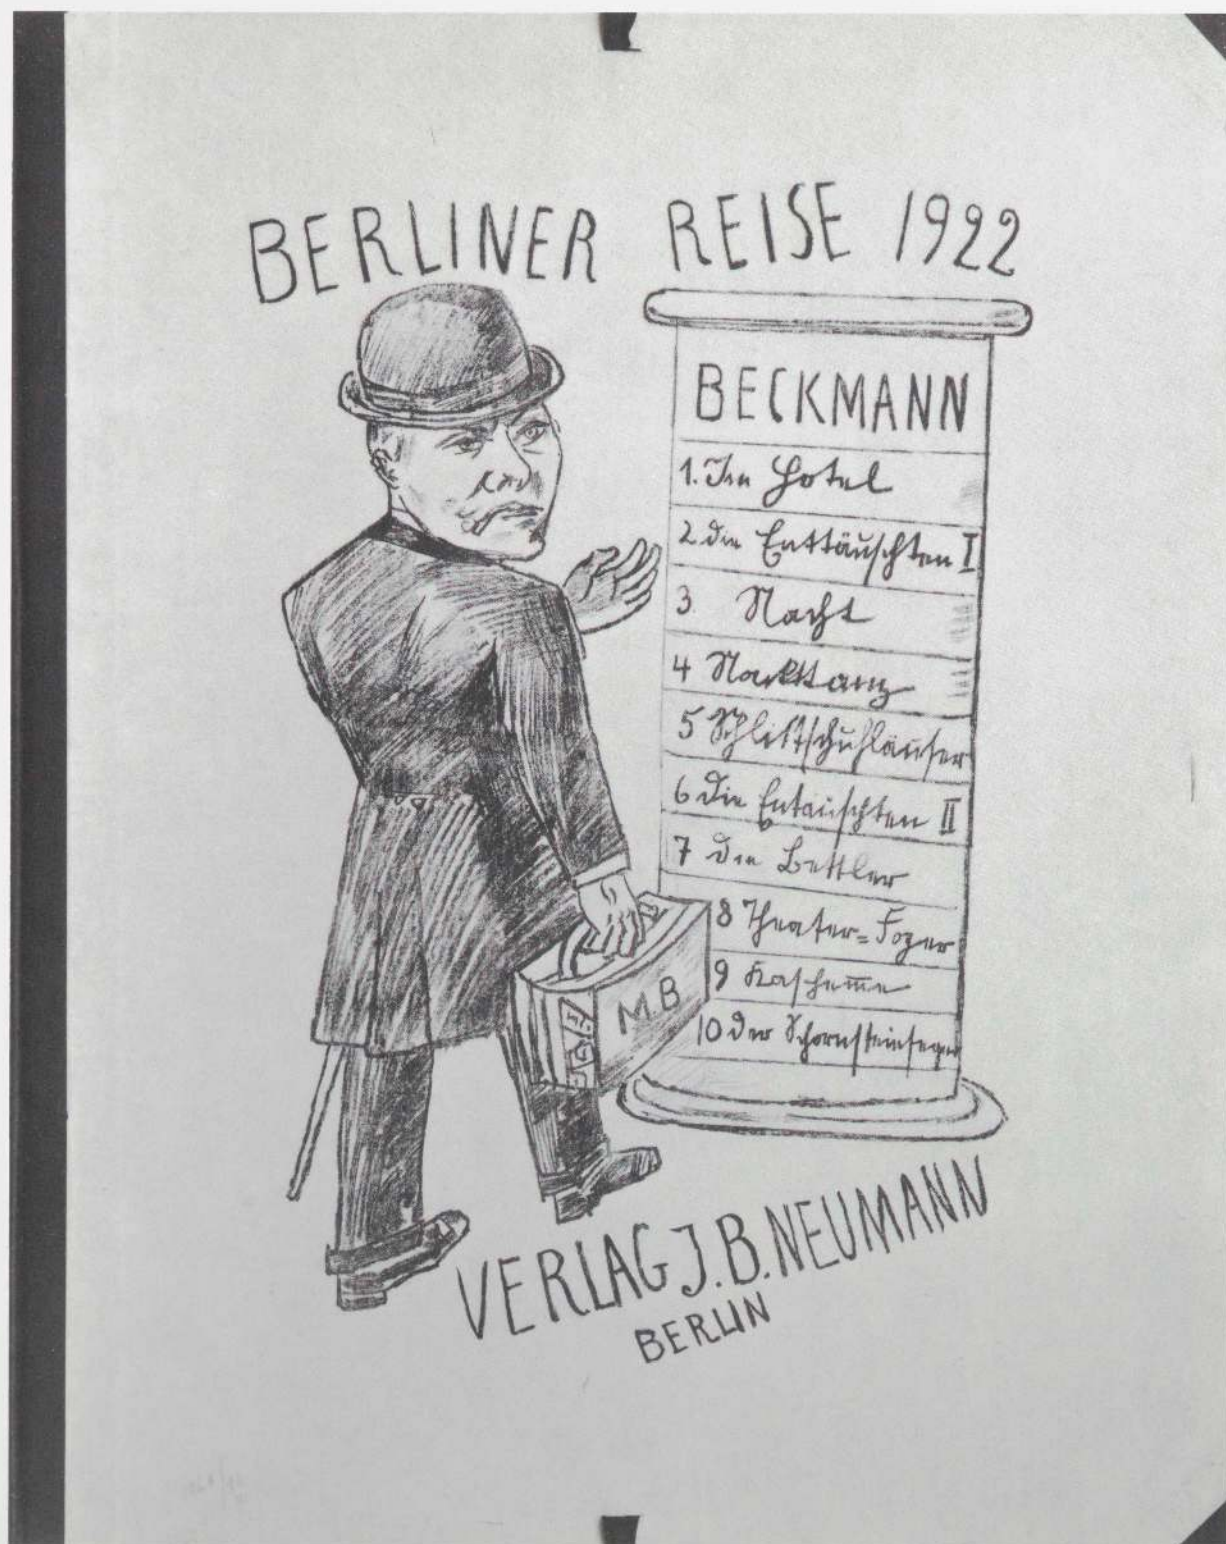 BERLINER REISE 1922
BECKMANN
1. Im Hotel
2 die Enttäuschten I
3 Nacht
4 Nackttanz
5 Schlittschuhläufer
6 Die Entäuschten II
7 die Bettler
8 Theater=Foyer
9 Kaschem̅e
10 der Schornsteinfeger
M.B
VERLAG J.B.NEUMANN
BERLIN